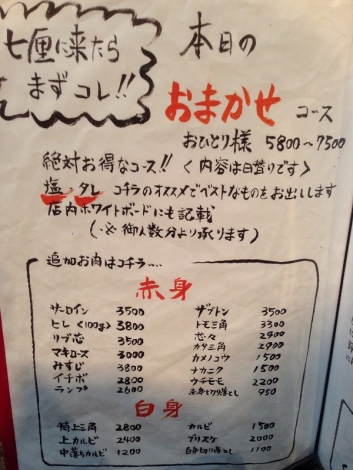 七厘に来たら
まず コレ!!
本日の
おまかせ コース
おひとり様 5800〜7500
絶対お得なコース!! 〈内容は日替りです〉
塩・タレ コチラのオススメでベストなものをお出しします
店内ホワイトボードにも記載
(※ 御人数分より承ります)
追加お肉はコチラ....
赤身
サーロイン 3500 ザブトン 3500
ヒレ〈100g〉 3800 トモ三角 3300
リブ芯 3500 芯々 2900
マキロース 3000 カタ三角 2900
みすじ 3800 カメノコウ 1500
イチボ 2800 ナカニク 1500
ランプ 2600 ウチモモ 2200
赤身切り落とし 950
白身
特上三角 2800 カルビ 1500
上カルビ 2400 ブリスケ 2000
中落ちカルビ 1200 白身切り落とし 1100